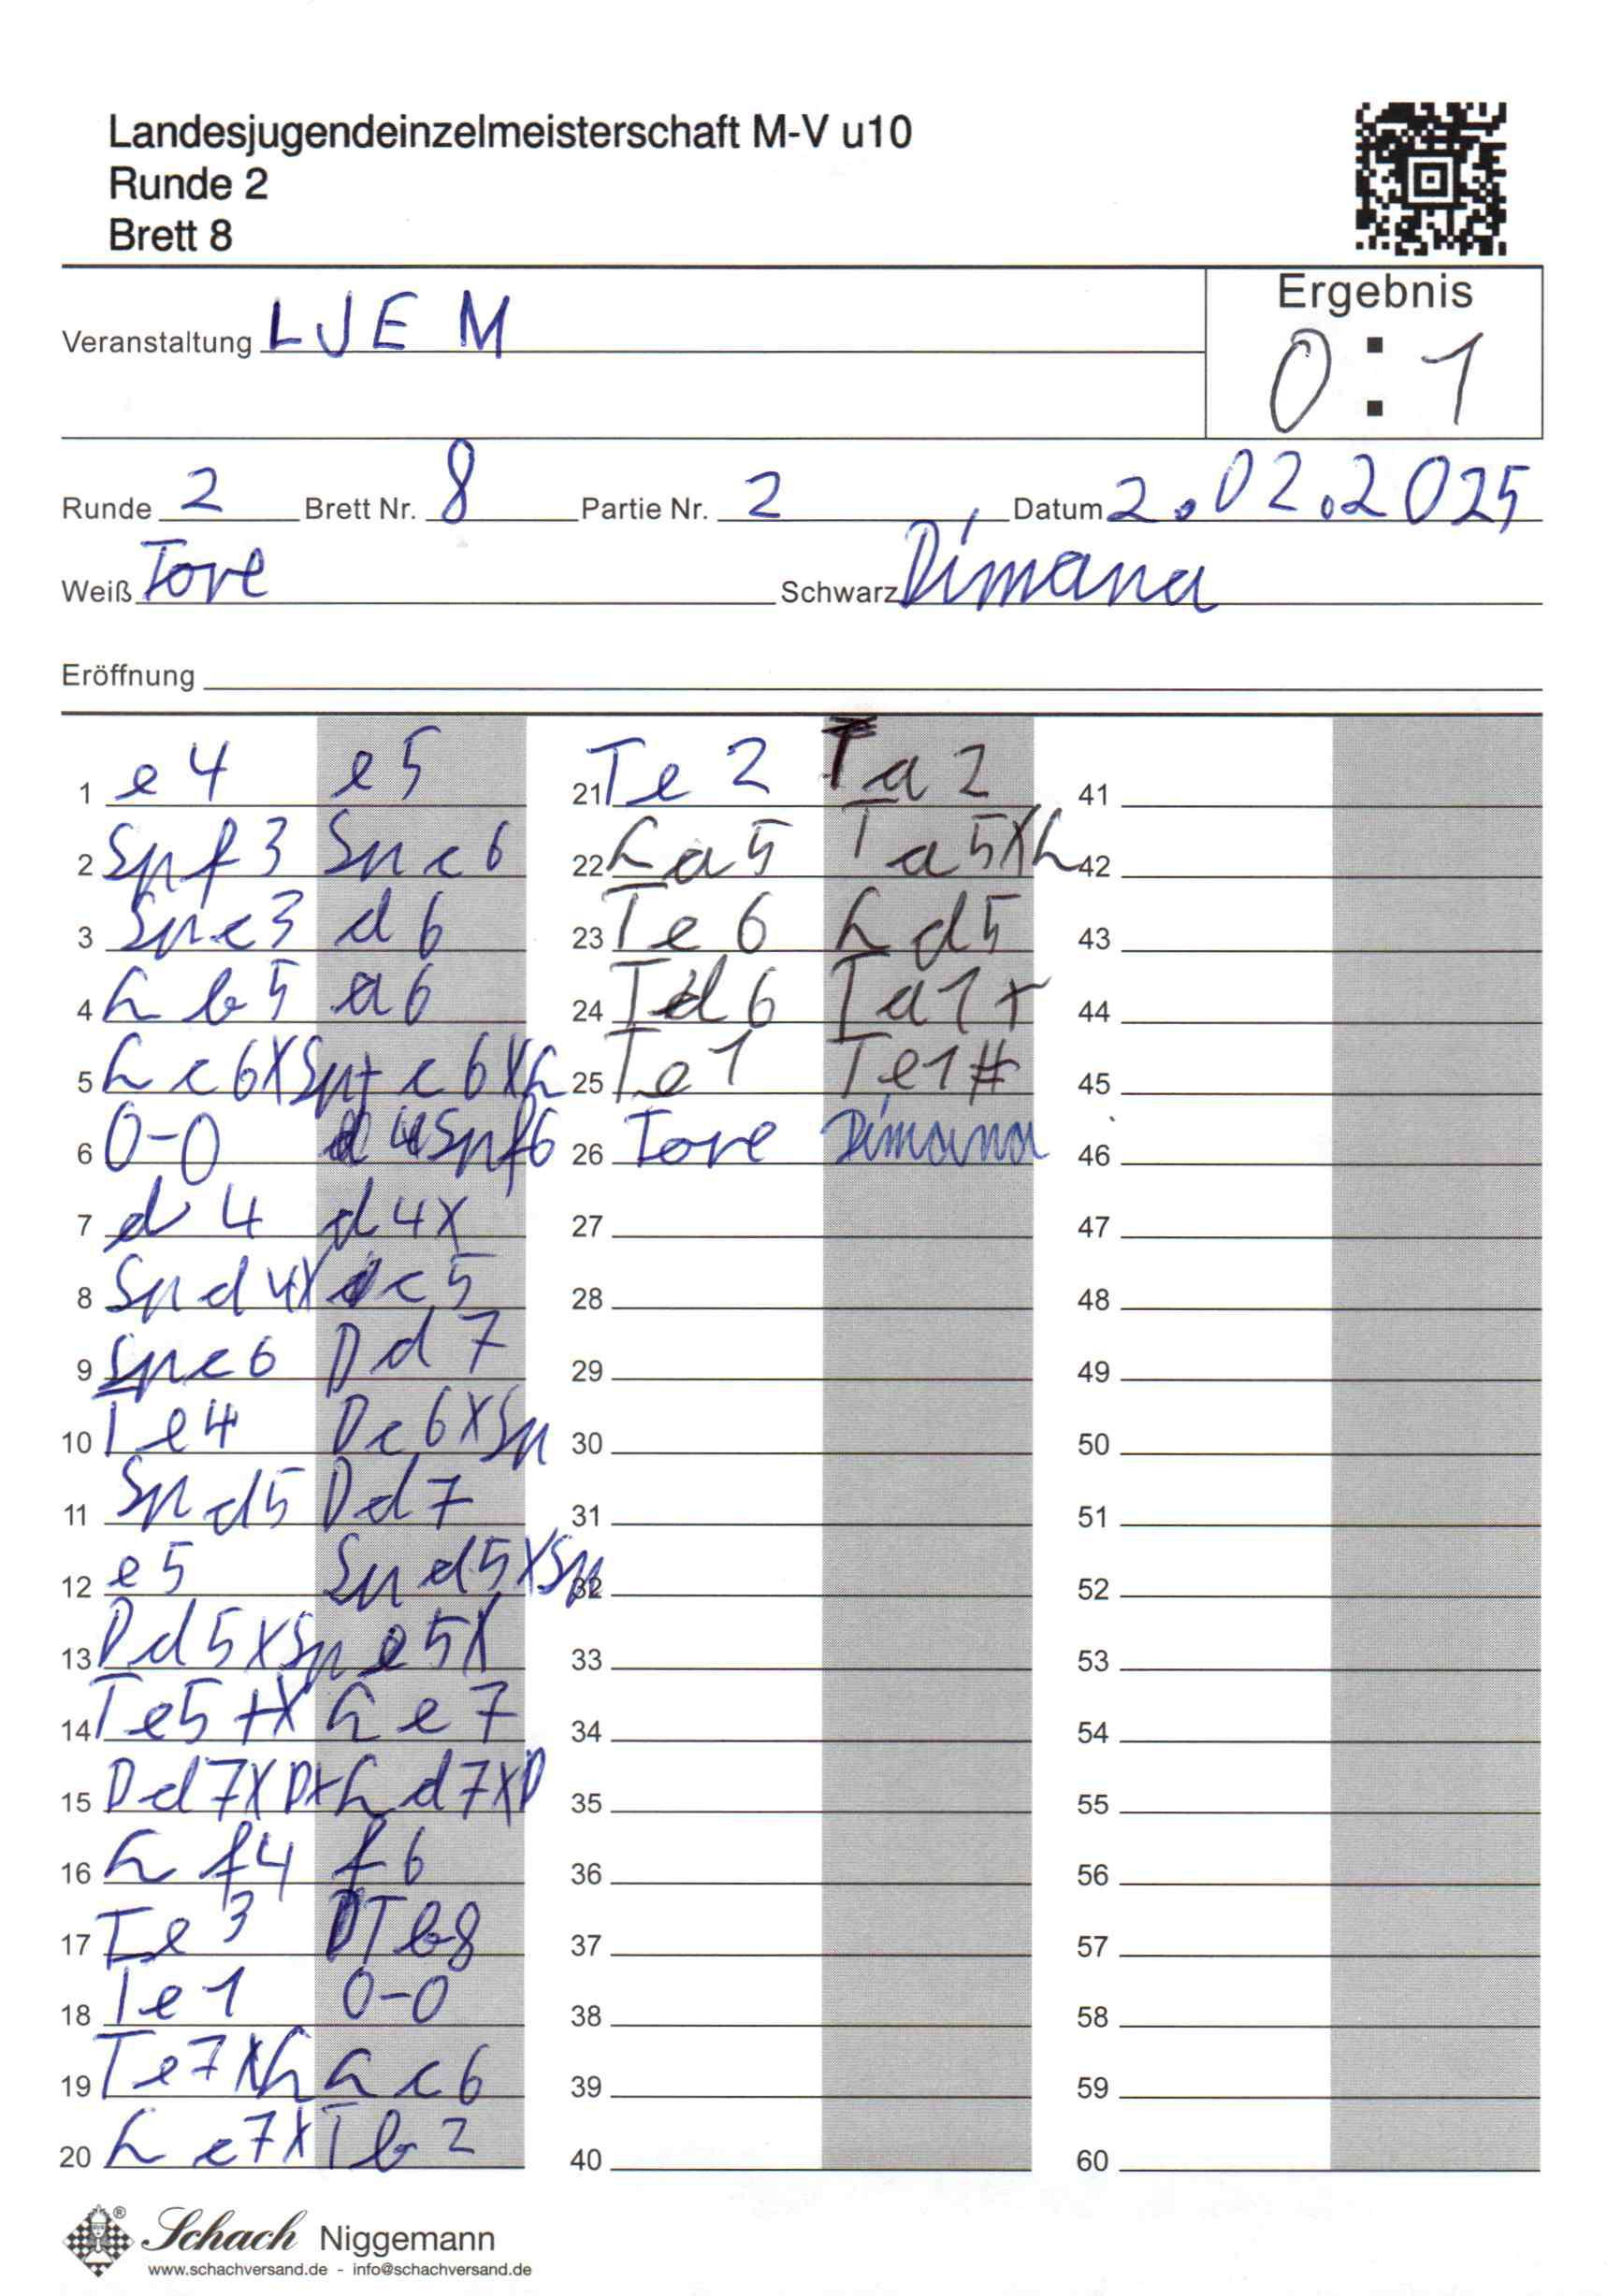 Landesjugendeinzelmeisterschaft M-V u10
Runde 2
Brett 8
Ergebnis
0:1
Veranstaltung LJEM
Runde 2 Brett Nr. 8 Partie Nr. 2 Datum 2.02.2025
Weiß Tore Schwarz Dimana
Eröffnung
1 e4 e5
2 Spf3 Spc6
3 Spc3 d6
4 Lb5 a6
5 Lc6XSp+ c6XL
6 0-0 Spf6
7 d4 d4X
8 Spd4X c5
9 Spc6 Dd7
10 Te4 Dc6XSp
11 Spd5 Dd7
12 e5 Spd5XSp
13 Dd5XSp e5X
14 Te5+X Le7
15 Dd7XD+ Ld7XD
16 Lf4 f6
17 Te3 Tb8
18 Te1 0-0
19 Te7XL Lc6
20 Lc7X Tb2
21 Te2 Ta2
22 La5 Ta5XL
23 Te6 Ld5
24 Td6 Ta1+
25 Te1 Te1#
26 Tore Dimana
27
28
29
30
31
32
33
34
35
36
37
38
39
40
41
42
43
44
45
46
47
48
49
50
51
52
53
54
55
56
57
58
59
60
Schach Niggemann
www.schachversand.de - info@schachversand.de